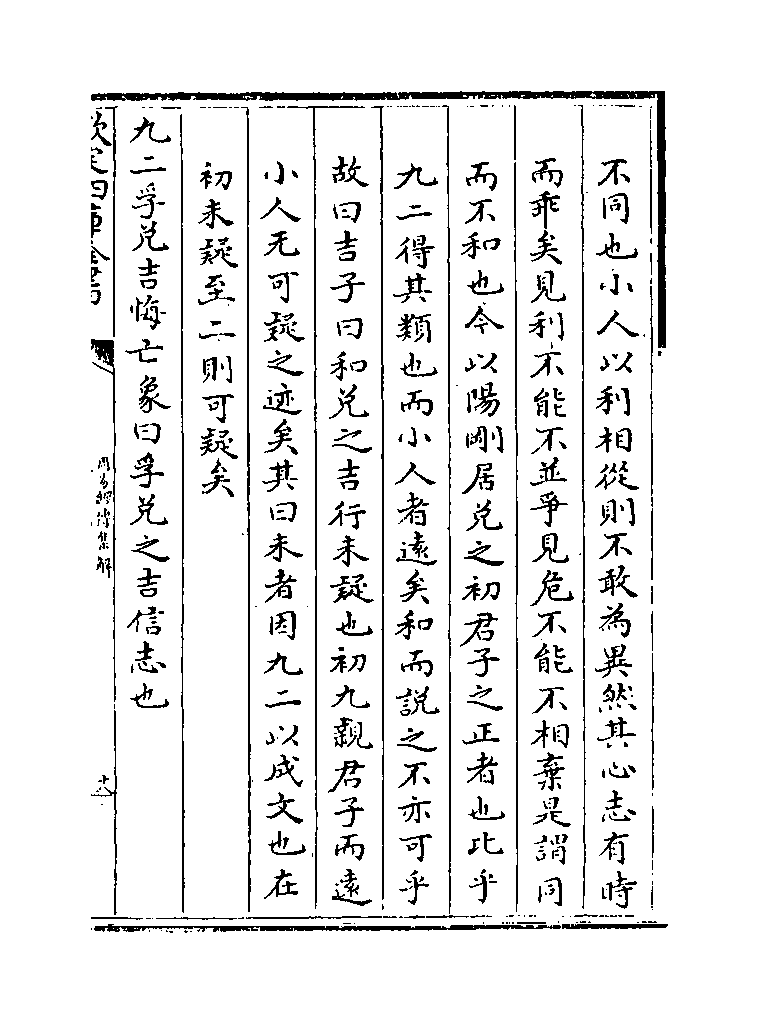 不同也小人以利相從則不敢為異然其心志有時
而乖矣見利不能不並爭見危不能不相棄是謂同
而不和也今以陽剛居兌之初君子之正者也比乎
九二得其類也而小人者遠矣和而說之不亦可乎
故曰吉子曰和兌之吉行未疑也初九親君子而遠
小人无可疑之迹矣其曰未者因九二以成文也在
初未疑至二則可疑矣
九二孚兌吉悔亡象曰孚兌之吉信志也
欽定四庫全書
周易經傳集解
十八